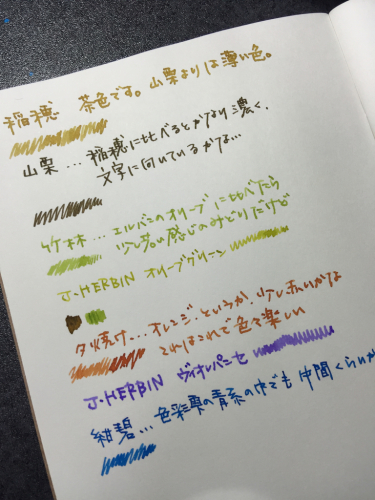 稲穂 茶色です。山栗よりは薄い色。
山栗…稲穂に比べるとかなり濃く、
文字に向いているかな…
竹林…エルバンのオリーブに比べたら
少し若い感じのみどりだけど
J・HERBIN オリーブグリーン
夕焼け…オレンジ、というか、少し赤いかな
これはこれで色々楽しい
J・HERBIN ヴィオレパンセ
紺碧…色彩雫の青系の中でも中間くらいか